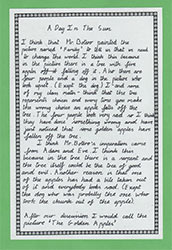 A Day In The Sun
I think that Mr Botero painted the
picture named "Family" to tell us that in need
to change the world. I think this because
in the picture there is a tree with five
apples off it falling off it. Also there are
four people and a dog in the picture who
look upset. (Except the dog) I had none
of my class mates think that the tree
represents chances and every time you make
the wrong choice an apple falls off the
tree. The four people look very sad as if
they have done something wrong and have
just noticed that some golden apples have
fallen off the tree.
I think Mr. Botero's inspiration came
from Adam and Eve. I think this
because in the tree there is a serpent and
the tree itself could be the tree of good
and evil. Another reason is that one
of the apples has had a bite taken out
of it and everybody looks sad (Except
the dog who was probably the one who
took the chunk out of the apple)
After our discussion I would call the
picture "The Golden Apples"